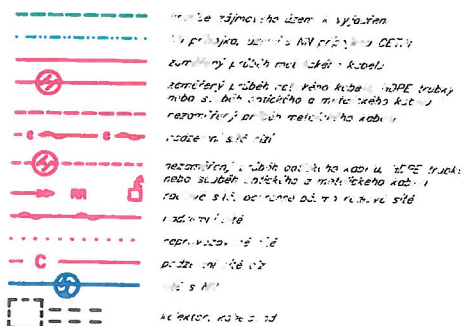 zájmového území k vyjádření
přípojka, území s NN přípojkou CETIN
zaměřený průběh metalického kabelu
zaměřený průběh optického kabelu, HDPE trubky
nebo souběh optického a metalického kabelu
nezaměřený průběh metalického kabelu
nadzemní sítě cizí
nezaměřený průběh optického kabelu, HDPE trubky
nebo souběh optického a metalického kabelu
RR
nadzemní sítě
neprovozované sítě
C podzemní sítě cizí
kolektor,